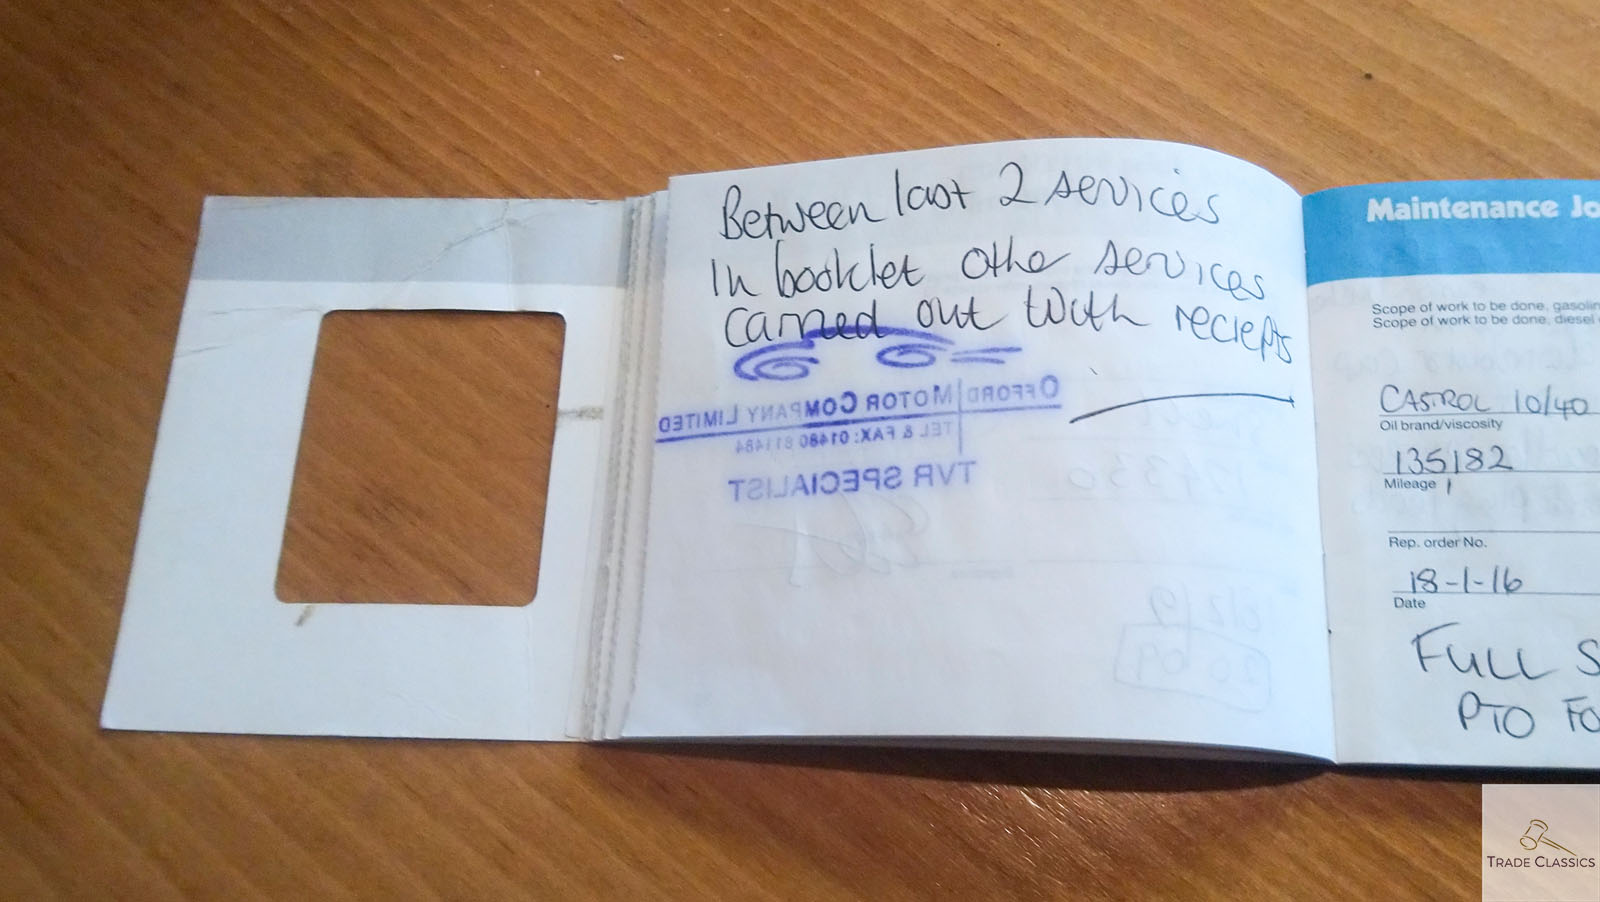 Between last 2 services
In booklet other services
carried out with reciepts
OFFORD MOTOR COMPANY LIMITED
TEL & FAX: 01480 811484
TVR SPECIALIST
Maintenance Jo
Scope of work to be done, gasolin
Scope of work to be done, diesel
CASTROL 10/40
Oil brand/viscosity
135182
Mileage
Rep. order No.
18-1-16
Date
FULL S
PTO FO
TRADE CLASSICS